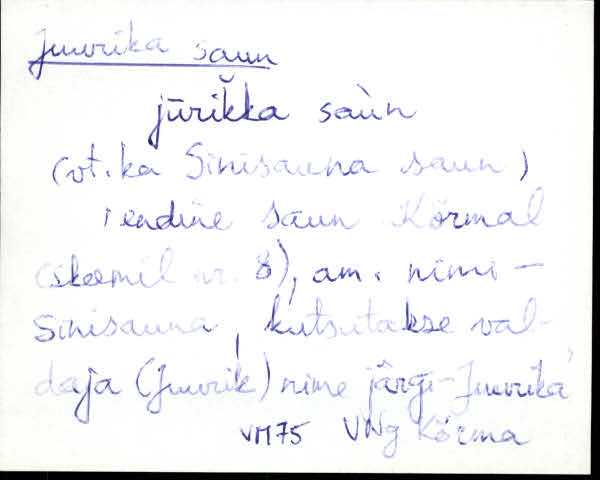 Juurika saun
jūrĭkka saùn
(vt. ka Sinisauna saun)
endine saun Kõrmal
(skeemil nr. 8), am. nimi -
Sinisauna, kutsutakse val-
daja (Juurik) nime järgi - Juurika
VM75 VNg Kõrma